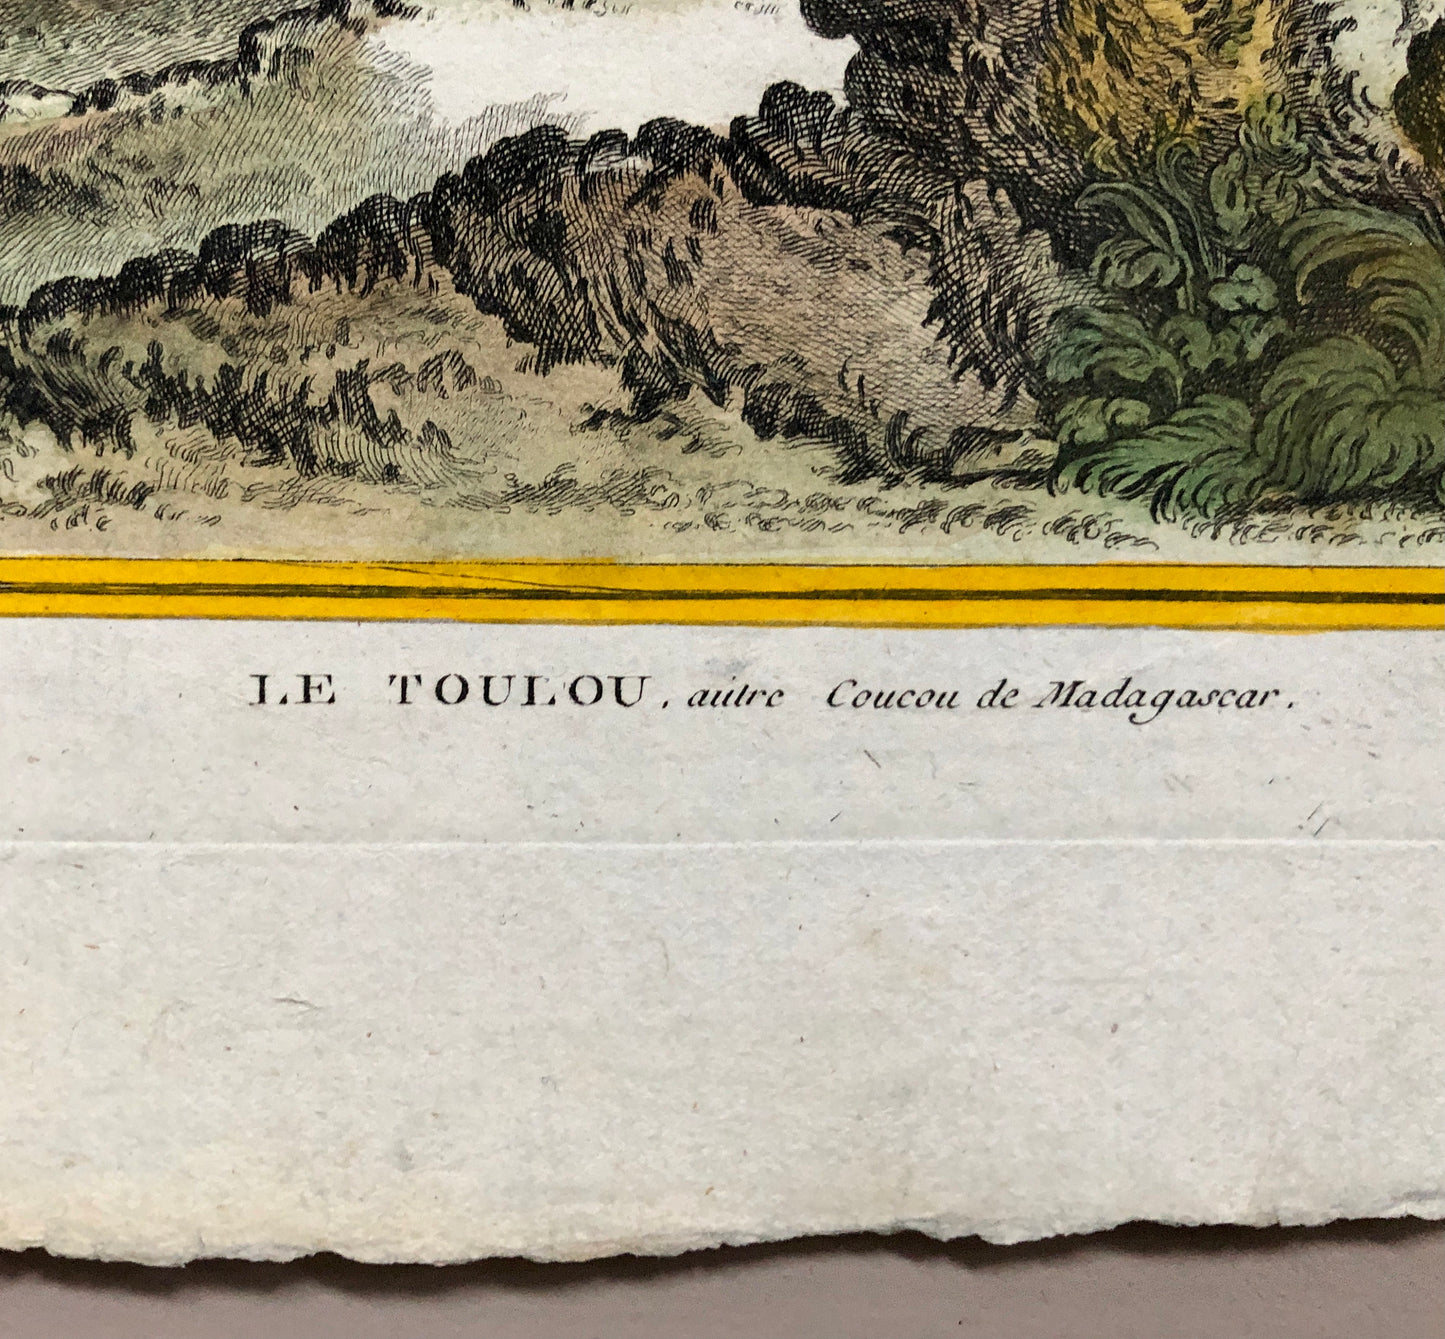 LE TOULOU, autre Coucou de Madagascar.